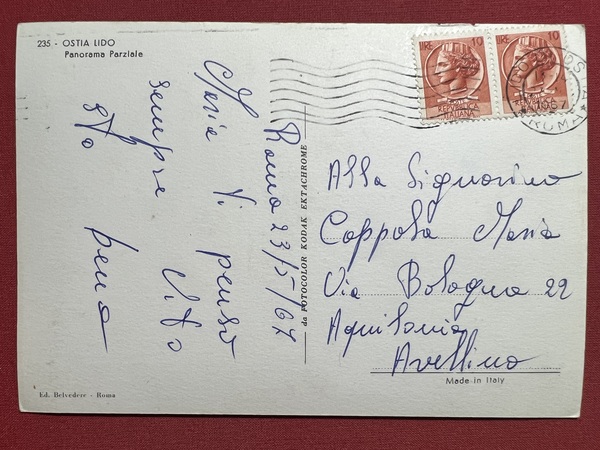 235 - OSTIA LIDO
Panorama Parziale
LIRE 10
REPUBBLICA
ITALIANA
LIRE 10
ROMA
Roma 23/5/67
Maria Ti penso
sempre Vito
sto bene
da FOTOCOLOR KODAK EKTACHROME
Alla Signorina
Coppola Maria
Via Bologna 22
Aquilonia
Avellino
Made in Italy
Ed. Belvedere - Roma